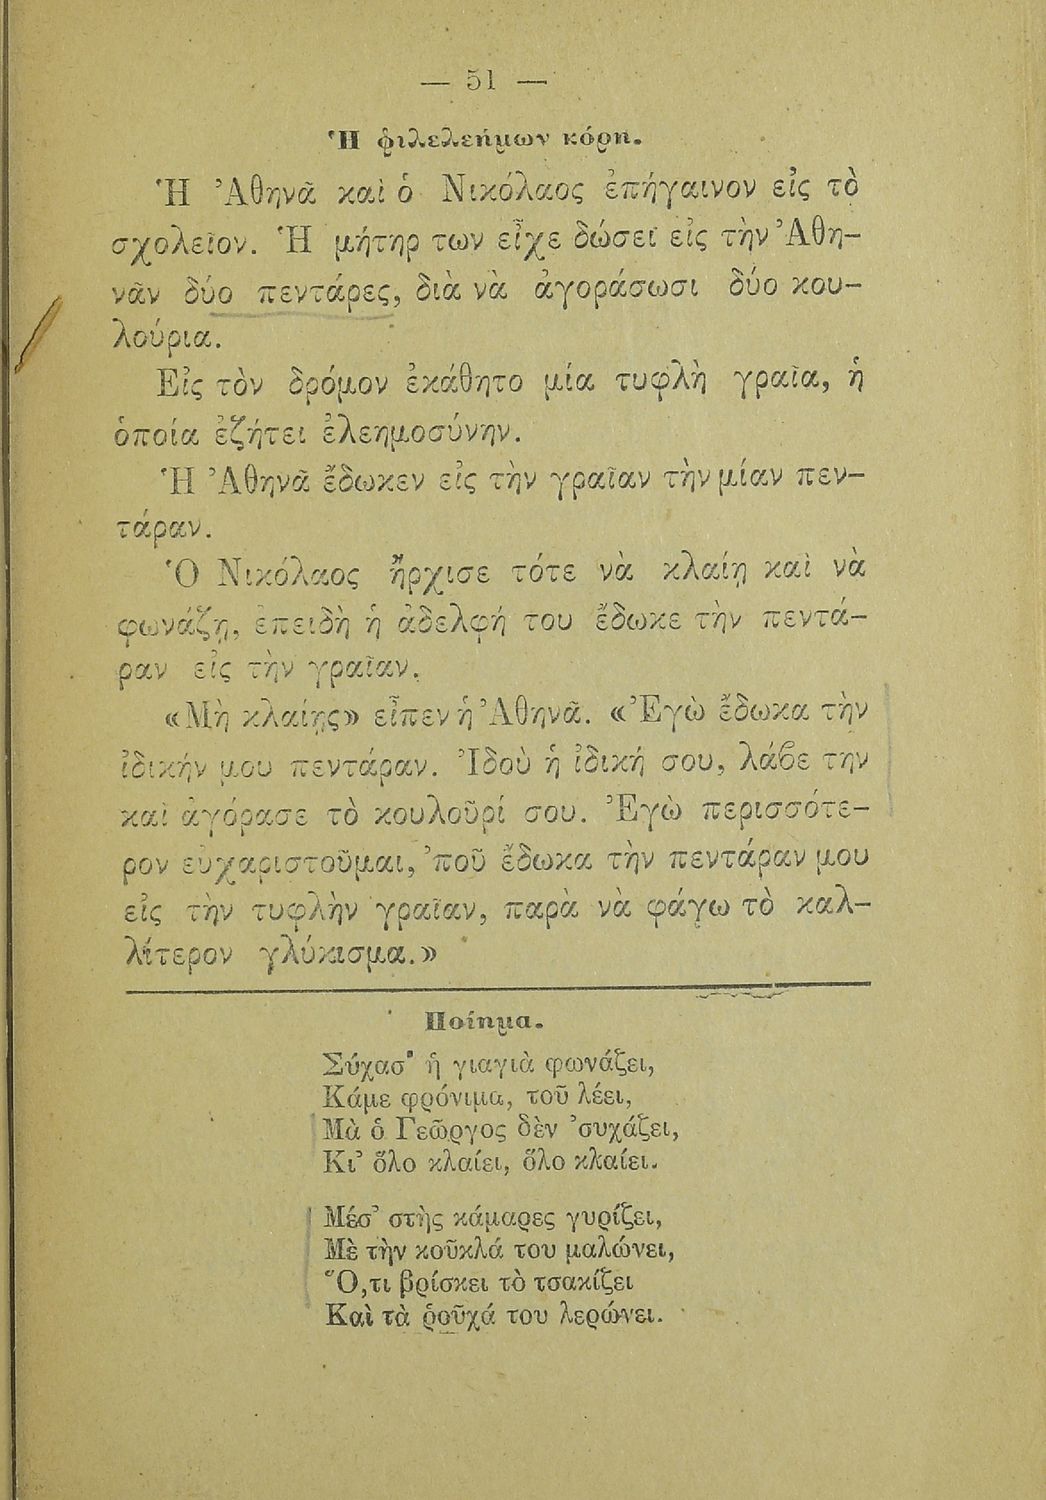 — 51 —
Ἡ φιλελεήμων κόρη.
Ἡ Ἀθηνᾶ καὶ ὁ Νικόλαος ἐπήγαινον εἰς τὸ
σχολεῖον. Ἡ μήτηρ των εἶχε δώσει εἰς τὴν Ἀθη-
νᾶν δύο πεντάρες, διὰ νὰ ἀγοράσωσι δύο κου-
λούρια.
Εἰς τὸν δρόμον ἐκάθητο μία τυφλὴ γραῖα, ἡ
ὁποία ἐζήτει ἐλεημοσύνην.
Ἡ Ἀθηνᾶ ἔδωκεν εἰς τὴν γραῖαν τὴν μίαν πεν-
τάραν.
Ὁ Νικόλαος ἤρχισε τότε νὰ κλαίῃ καὶ νὰ
φωνάζῃ, ἐπειδὴ ἡ ἀδελφή του ἔδωκε τὴν πεντά-
ραν εἰς τὴν γραῖαν.
«Μὴ κλαίῃς» εἶπεν ἡ Ἀθηνᾶ. «Ἐγὼ ἔδωκα τὴν
ἰδικήν μου πεντάραν. Ἰδοὺ ἡ ἰδική σου, λάβε την
καὶ ἀγόρασε τὸ κουλοῦρί σου. Ἐγὼ περισσότε-
ρον εὐχαριστοῦμαι, ’ποῦ ἔδωκα τὴν πεντάραν μου
εἰς τὴν τυφλὴν γραῖαν, παρὰ νὰ φάγω τὸ καλ-
λίτερον γλύκισμα.»
Ποίημα.
Σύχασ’ ἡ γιαγιὰ φωνάζει,
Κάμε φρόνιμα, τοῦ λέει,
Μὰ ὁ Γεῶργος δὲν ’συχάζει,
Κι’ ὅλο κλαίει, ὅλο κλαίει.
Μέσ’ στὴς κάμαρες γυρίζει,
Μὲ τὴν κοῦκλά του μαλώνει,
Ὅ,τι βρίσκει τὸ τσακίζει
Καὶ τὰ ῥοῦχά του λερώνει.